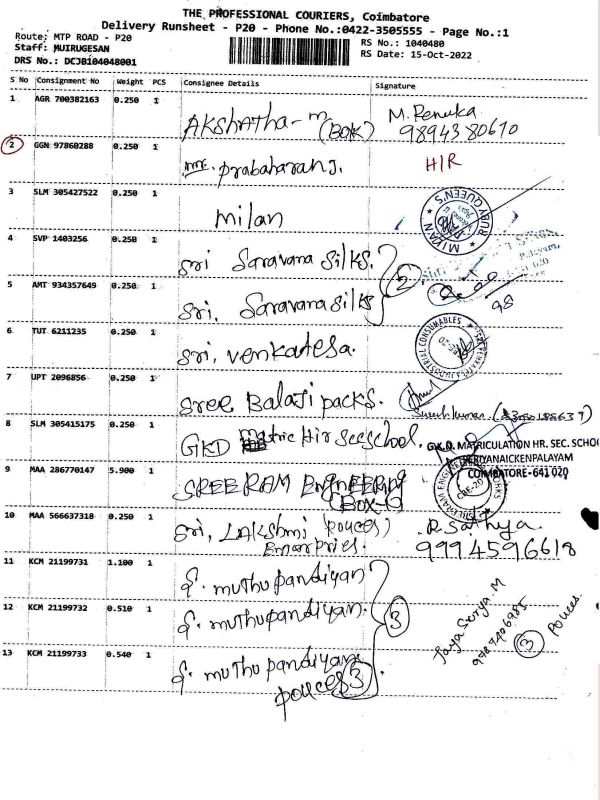 THE PROFESSIONAL COURIERS, Coimbatore
Delivery Runsheet - P20 - Phone No.:0422-3505555 - Page No.:1
Route: MTP ROAD - P20
RS No.: 1040480
Staff: MUIRUGESAN
RS Date: 15-Oct-2022
DRS No.: DCJB104048001
S No Consignment No Weight PCS Consignee Details Signature
1 AGR 700382163 0.250 1 AKshatha-m (BOK) M. Renuka
9894380610
2 GGN 97860288 0.250 1 mr. prabaharan J. HIR
3 SLM 305427522 0.250 1 milan MIYAN RUBY QUEEN'S
4 SVP 1403256 0.250 1 Sri Saravana Silks.
5 AMT 934357649 0.250 1 Sri. Saravana Silks 2
98
6 TUT 6211235 0.250 1 Sri. venkatesa.
7 UPT 2096856 0.250 1 Sree Balaji packs.
8 SLM 305415175 0.250 1 GKD matric Hir Sec School. G.K.D. MATRICULATION HR. SEC. SCHOO
PERIYANAICKENPALAYAM
COIMBATORE-641 020
9 MAA 286770147 5.900 1 SREE RAM Engineering
Box-
10 MAA 566637318 0.250 1 Sri. LAKshmi (pouces) R. Sathya.
Enterprises. 9994596618
11 KCM 21199731 1.100 1 S. muthupandiyan
12 KCM 21199732 0.510 1 S. muthupandiyan. 3
13 KCM 21199733 0.540 1 S. muthu pandiyan
pouces 3
Jaya Surya. M
3 pouces.